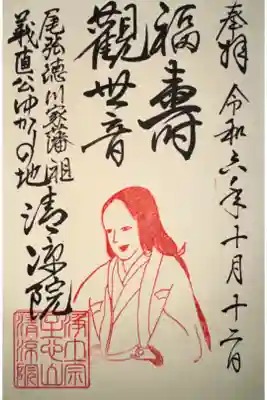 奉拝
令和六年十月十二日
福寿
觀世音
尾張徳川家藩祖
義直公ゆかりの地
清涼院
浄土宗
至心山
清涼院